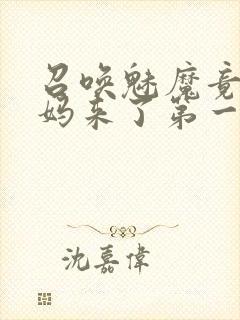 召唤魅魔竟
妈来了第一
沈嘉偉